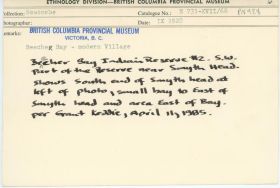 ETHNOLOGY DIVISION—BRITISH COLUMBIA PROVINCIAL MUSEUM
Collection: Newcombe Catalogue No.: E 731-XVII/68 PN 424
Remarks: Date: IX 1920
BRITISH COLUMBIA PROVINCIAL MUSEUM
VICTORIA, B. C.
Beechey Bay - modern Village
Becher Bay Indian Reserve #2. S.W.
Part of the Reserve near Smyth Head.
shows South end of Smyth head at
left of photo, small bay to East of
Smyth head and area East of Bay.
per Grant Keddie, April 11, 1985.